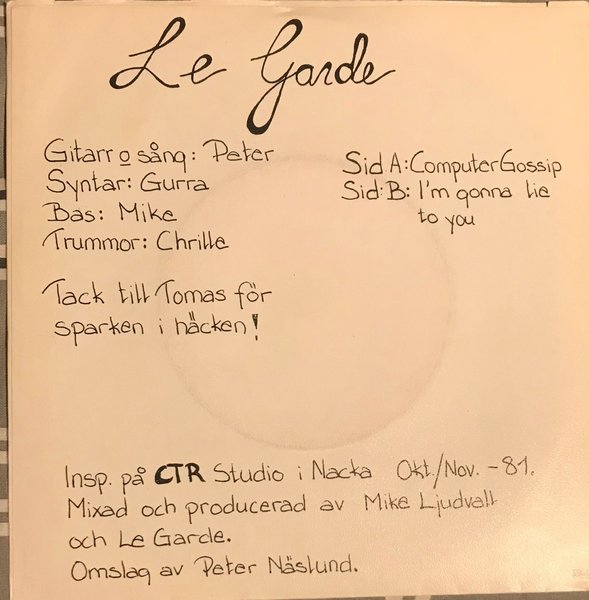 Le Garde
Gitarr o sång: Peter
Syntar: Gurra
Bas: Mike
Trummor: Chrille
Sid A: Computer Gossip
Sid: B: I'm gonna lie
to you
Tack till Tomas för
sparken i häcken!
Insp. på CTR Studio i Nacka Okt./Nov. -81.
Mixad och producerad av Mike Ljudvall
och Le Garde.
Omslag av Peter Näslund.